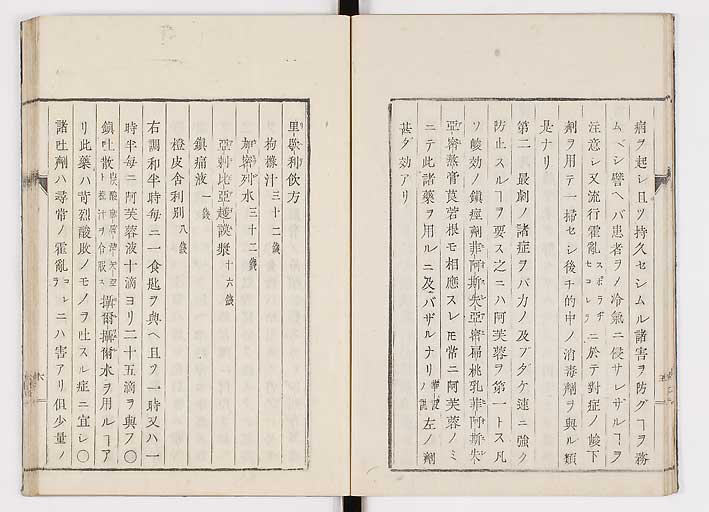 病ヲ起シ且ツ持久セシムル諸害ヲ防グヿヲ務
ムベシ譬ヘバ患者ヲノ冷氣ニ侵サレザルヿヲ
注意シ又流行霍亂スポラヂセコレラニ於テ對症ノ峻下
劑ヲ用テ一掃セシ後チ的中ノ消毒劑ヲ與ル類
是ナリ
第二 最劇ノ諸症ヲバ力ノ及ブダケ速ニ強ク
防止スルヿヲ要ス之ニハ阿芙蓉ヲ第一トス凡
ソ峻効ノ鎮痙劑菲阿斯朱亞密扁桃乳菲阿斯朱
亞密熬膏莨菪根モ相應スレ𪜈常ニ阿芙蓉ノミ
ニテ此諸藥ヲ用ルニ及バザルナリ左ノ劑
甚ダ効アリ
里歇利飲方
枸櫞汁三十二錢
加密列水三十二錢
亞剌比亞護謨漿十六錢
鎮痛液一錢
橙皮舎利別八錢
右調和半時毎ニ一食匙ヲ與ヘ且ツ一時又ハ一
時半毎ニ阿芙蓉液十滴ヨリ二十五滴ヲ與フ○
鎮吐散ト櫞汁ヲ合服ス攝爾攝爾水ヲ用ルヿア
リ此藥ハ苛烈酸敗ノモノヲ吐スル症ニ宜シ○
諸吐劑ハ尋常ノ霍亂コレラニハ害アリ但少量ノ